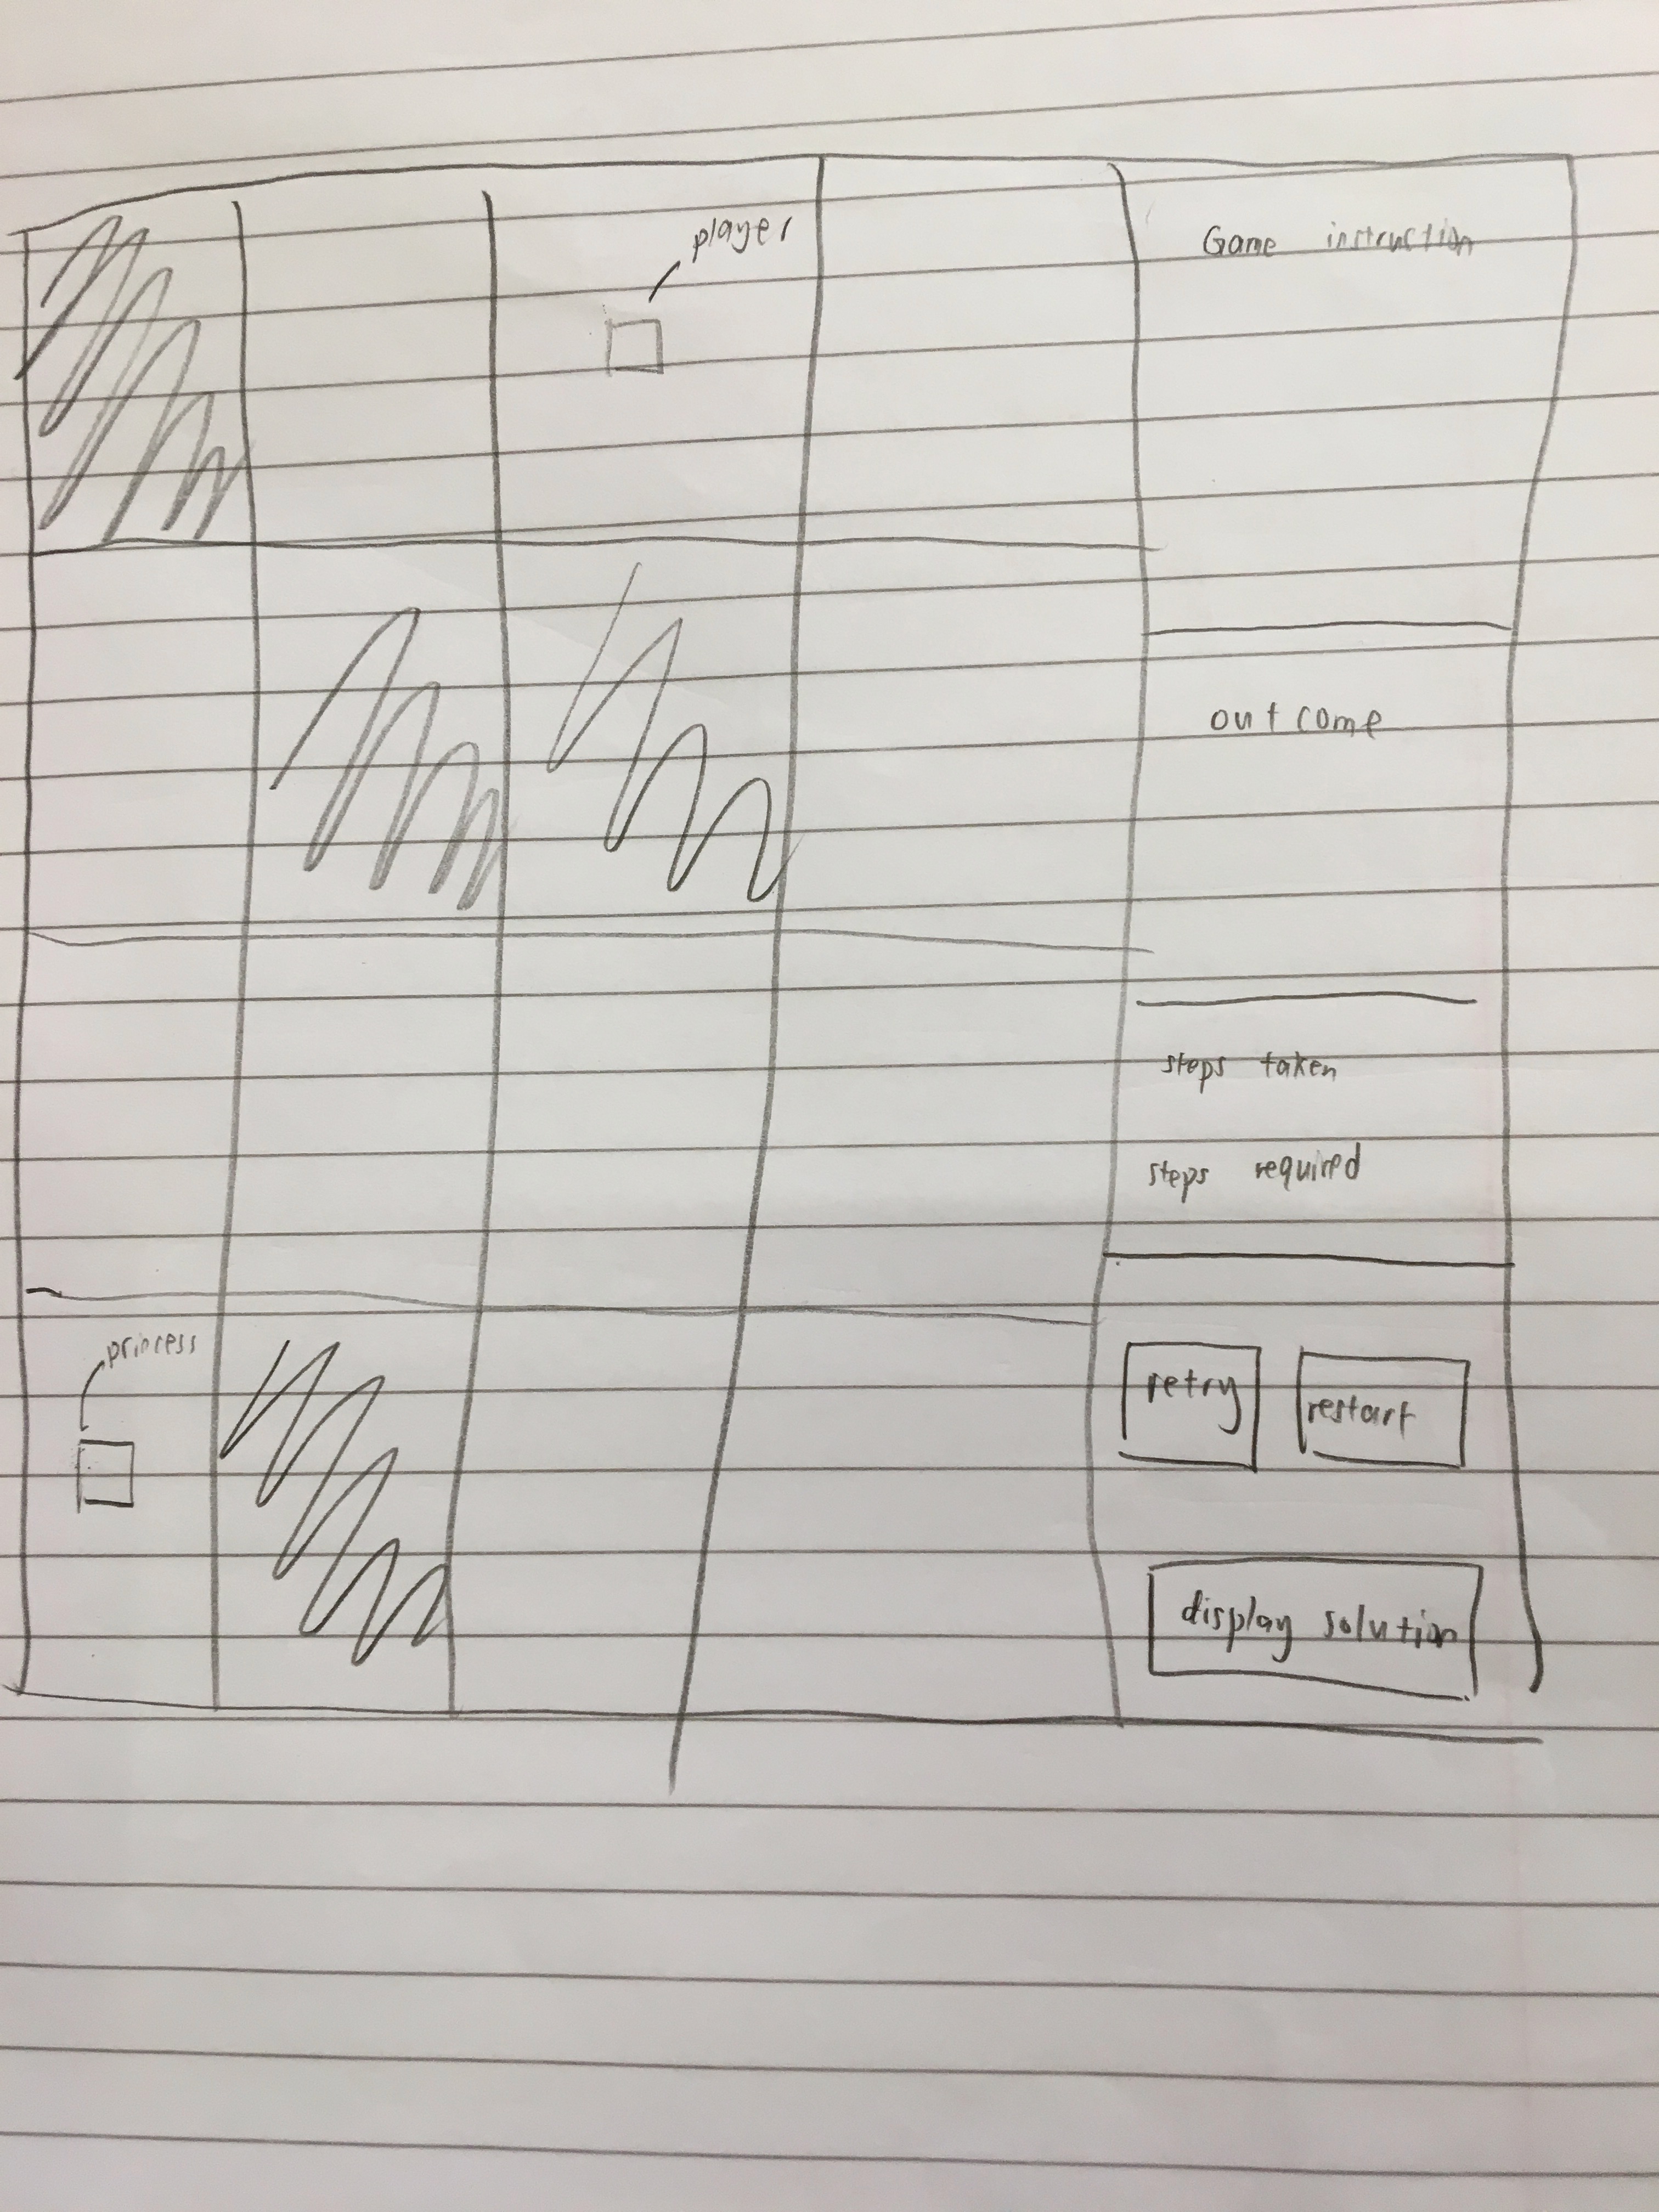 player
Game instruction
outcome
steps taken
steps required
princess
retry
restart
display solution